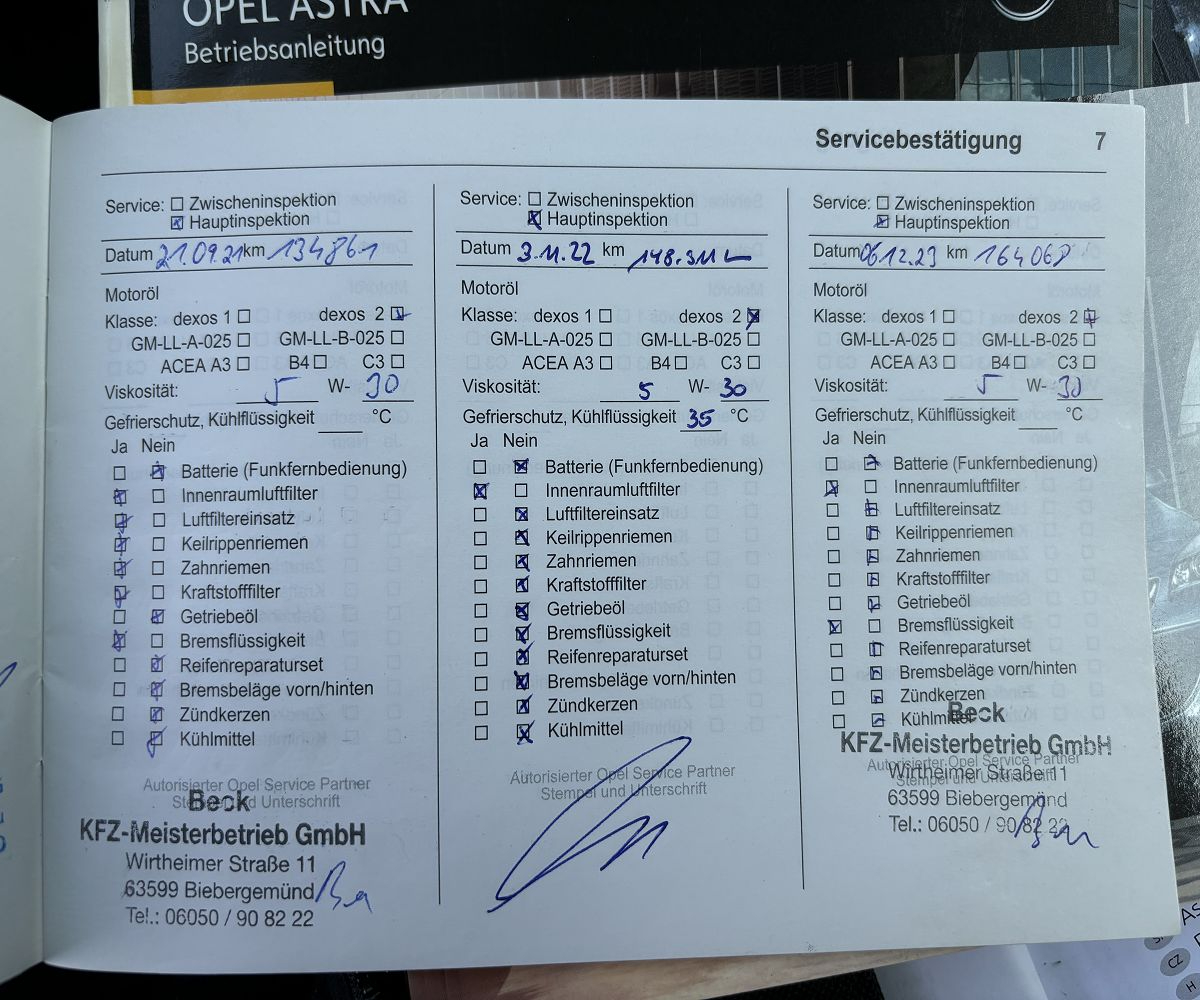 OPEL ASTRA
Betriebsanleitung
Servicebestätigung 7
Service: ☐ Zwischeninspektion
☒ Hauptinspektion
Datum 21.09.21 km 134861
Motoröl
Klasse: dexos 1 ☐ dexos 2 ☒
GM-LL-A-025 ☐ GM-LL-B-025 ☐
ACEA A3 ☐ B4 ☐ C3 ☐
Viskosität: 5 W- 30
Gefrierschutz, Kühlflüssigkeit ___ °C
Ja Nein
☐ ☒ Batterie (Funkfernbedienung)
☒ ☐ Innenraumluftfilter
☒ ☐ Luftfiltereinsatz
☒ ☐ Keilrippenriemen
☒ ☐ Zahnriemen
☒ ☐ Kraftstofffilter
☐ ☒ Getriebeöl
☒ ☐ Bremsflüssigkeit
☐ ☒ Reifenreparaturset
☐ ☒ Bremsbeläge vorn/hinten
☐ ☒ Zündkerzen
☐ ☒ Kühlmittel
Autorisierter Opel Service Partner
Stempel und Unterschrift
Beck
KFZ-Meisterbetrieb GmbH
Wirtheimer Straße 11
63599 Biebergemünd
Tel.: 06050 / 90 82 22
Service: ☐ Zwischeninspektion
☒ Hauptinspektion
Datum 3.11.22 km 148.311
Motoröl
Klasse: dexos 1 ☐ dexos 2 ☒
GM-LL-A-025 ☐ GM-LL-B-025 ☐
ACEA A3 ☐ B4 ☐ C3 ☐
Viskosität: 5 W- 30
Gefrierschutz, Kühlflüssigkeit 35 °C
Ja Nein
☐ ☒ Batterie (Funkfernbedienung)
☒ ☐ Innenraumluftfilter
☐ ☒ Luftfiltereinsatz
☐ ☒ Keilrippenriemen
☐ ☒ Zahnriemen
☐ ☒ Kraftstofffilter
☐ ☒ Getriebeöl
☐ ☒ Bremsflüssigkeit
☐ ☒ Reifenreparaturset
☐ ☒ Bremsbeläge vorn/hinten
☐ ☒ Zündkerzen
☐ ☒ Kühlmittel
Autorisierter Opel Service Partner
Stempel und Unterschrift
Service: ☐ Zwischeninspektion
☒ Hauptinspektion
Datum 06.12.23 km 164068
Motoröl
Klasse: dexos 1 ☐ dexos 2 ☒
GM-LL-A-025 ☐ GM-LL-B-025 ☐
ACEA A3 ☐ B4 ☐ C3 ☐
Viskosität: 5 W- 30
Gefrierschutz, Kühlflüssigkeit ___ °C
Ja Nein
☐ ☒ Batterie (Funkfernbedienung)
☒ ☐ Innenraumluftfilter
☐ ☒ Luftfiltereinsatz
☐ ☒ Keilrippenriemen
☐ ☒ Zahnriemen
☐ ☒ Kraftstofffilter
☐ ☒ Getriebeöl
☒ ☐ Bremsflüssigkeit
☐ ☒ Reifenreparaturset
☐ ☒ Bremsbeläge vorn/hinten
☐ ☒ Zündkerzen
☐ ☒ Kühlmittel
Autorisierter Opel Service Partner
Stempel und Unterschrift
Beck
KFZ-Meisterbetrieb GmbH
Wirtheimer Straße 11
63599 Biebergemünd
Tel.: 06050 / 90 82 22
CZ
H